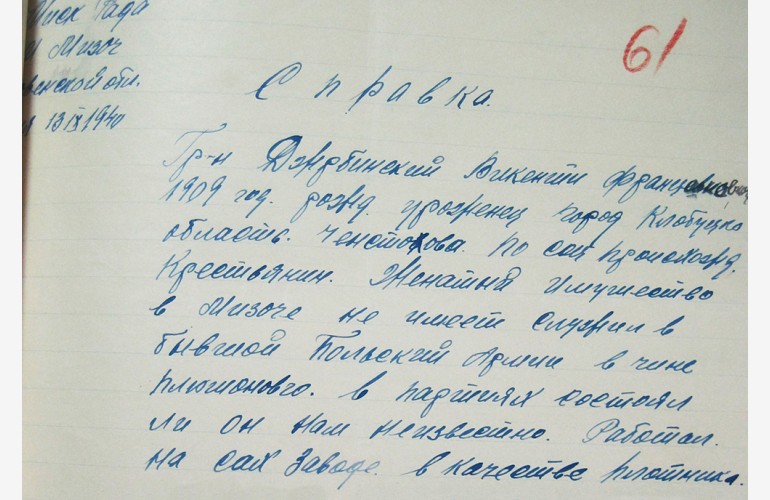 61
Рада
Мизоч
венской обл.
13 IX 1940
Справка.
Гр-н Дждбинский Викенти
1909 год. рожд. уроженец город Клобуцко
область. Ченстохова. по соц происхожд.
Крестьянин. Женатый Имущество
в Мизоче не имеет Служил в
бывшой Польский Армии в чине
плютонового. в партиях состоял
ли он нам неизвестно. Работал.
на сах Заводе. в качестве плотника.